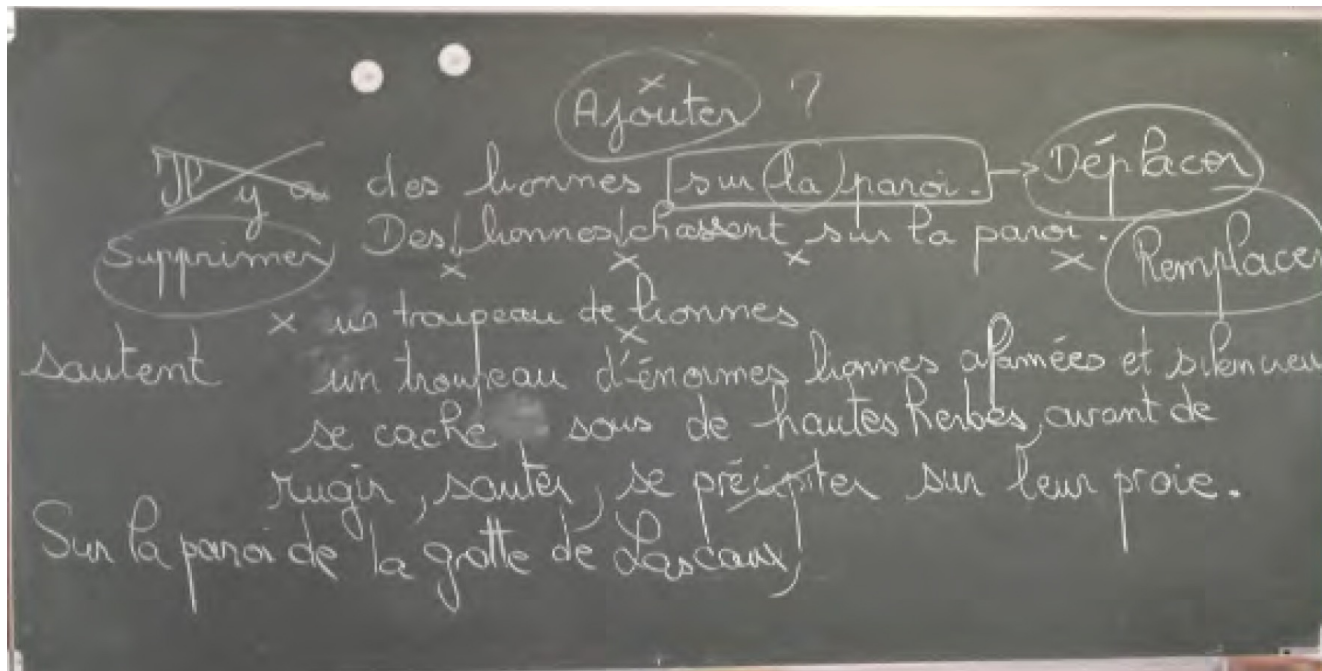 Ajouter ?
Il y a des lionnes sur la paroi. → Déplacer
Supprimer Des lionnes chassent sur la paroi. Remplacer
un troupeau de lionnes
sautent un troupeau d'énormes lionnes afamées et silencieu
se cache sous de hautes herbes, avant de
rugir, sauter, se précipiter sur leur proie.
Sur la paroi de la grotte de Lascaux,